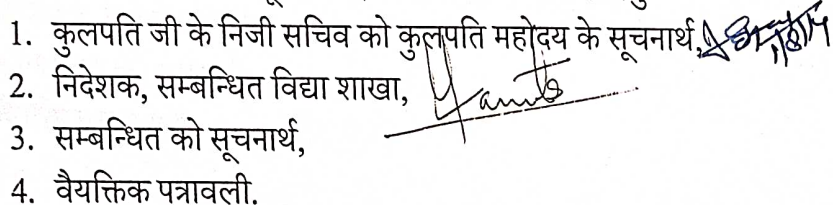 1. कुलपति जी के निजी सचिव को कुलपति महोदय के सूचनार्थ,
2. निदेशक, सम्बन्धित विद्या शाखा,
3. सम्बन्धित को सूचनार्थ,
4. वैयक्तिक पत्रावली.